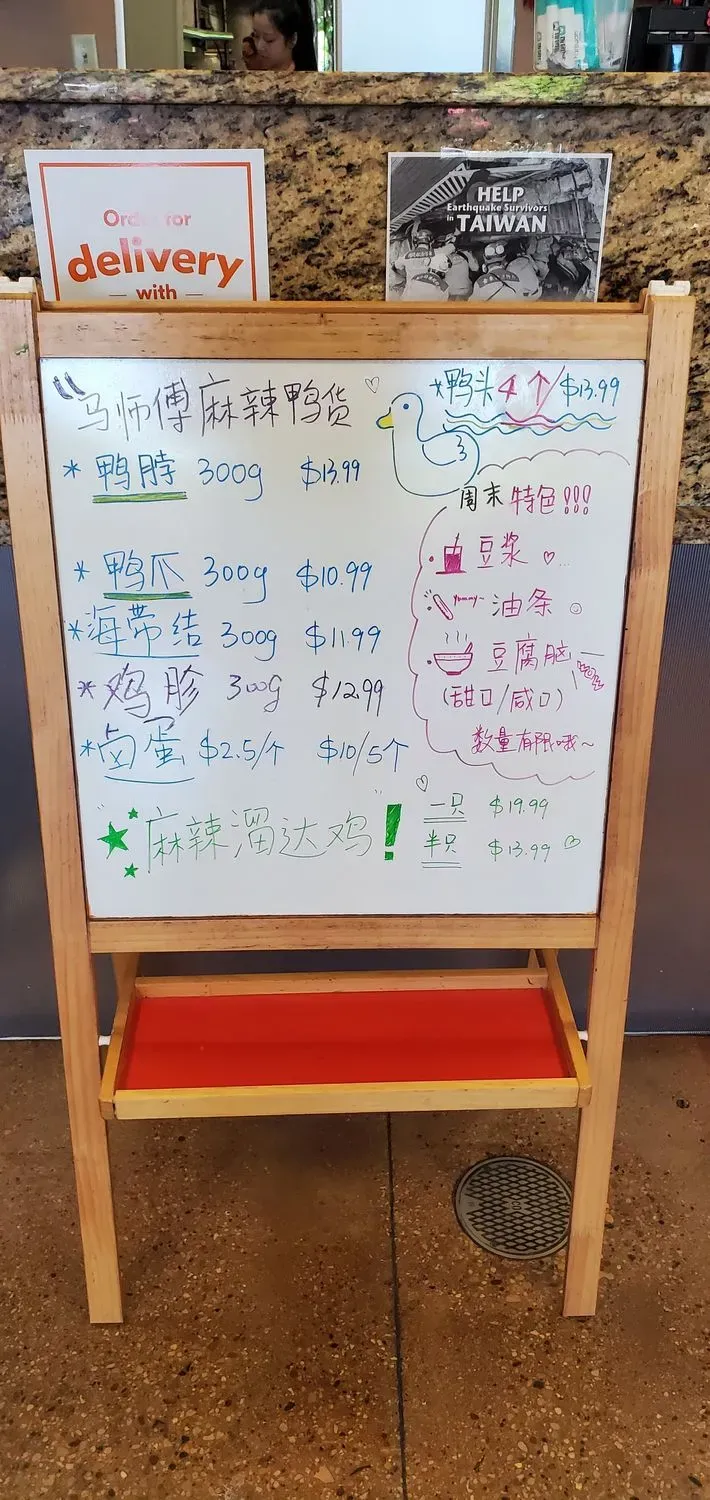 Order for
delivery
with
HELP
Earthquake Survivors
in TAIWAN
"马师傅麻辣鸭货
*鸭头4个/$13.99
* 鸭脖 300g $13.99
* 鸭爪 300g $10.99
*海带结 300g $11.99
*鸡胗 300g $12.99
*卤蛋 $2.5/个 $10/5个
周末特色!!!
豆浆
yummy~ 油条
豆腐脑
(甜口/咸口)
数量有限哦~
"麻辣溜达鸡"!
一只 $19.99
半只 $13.99